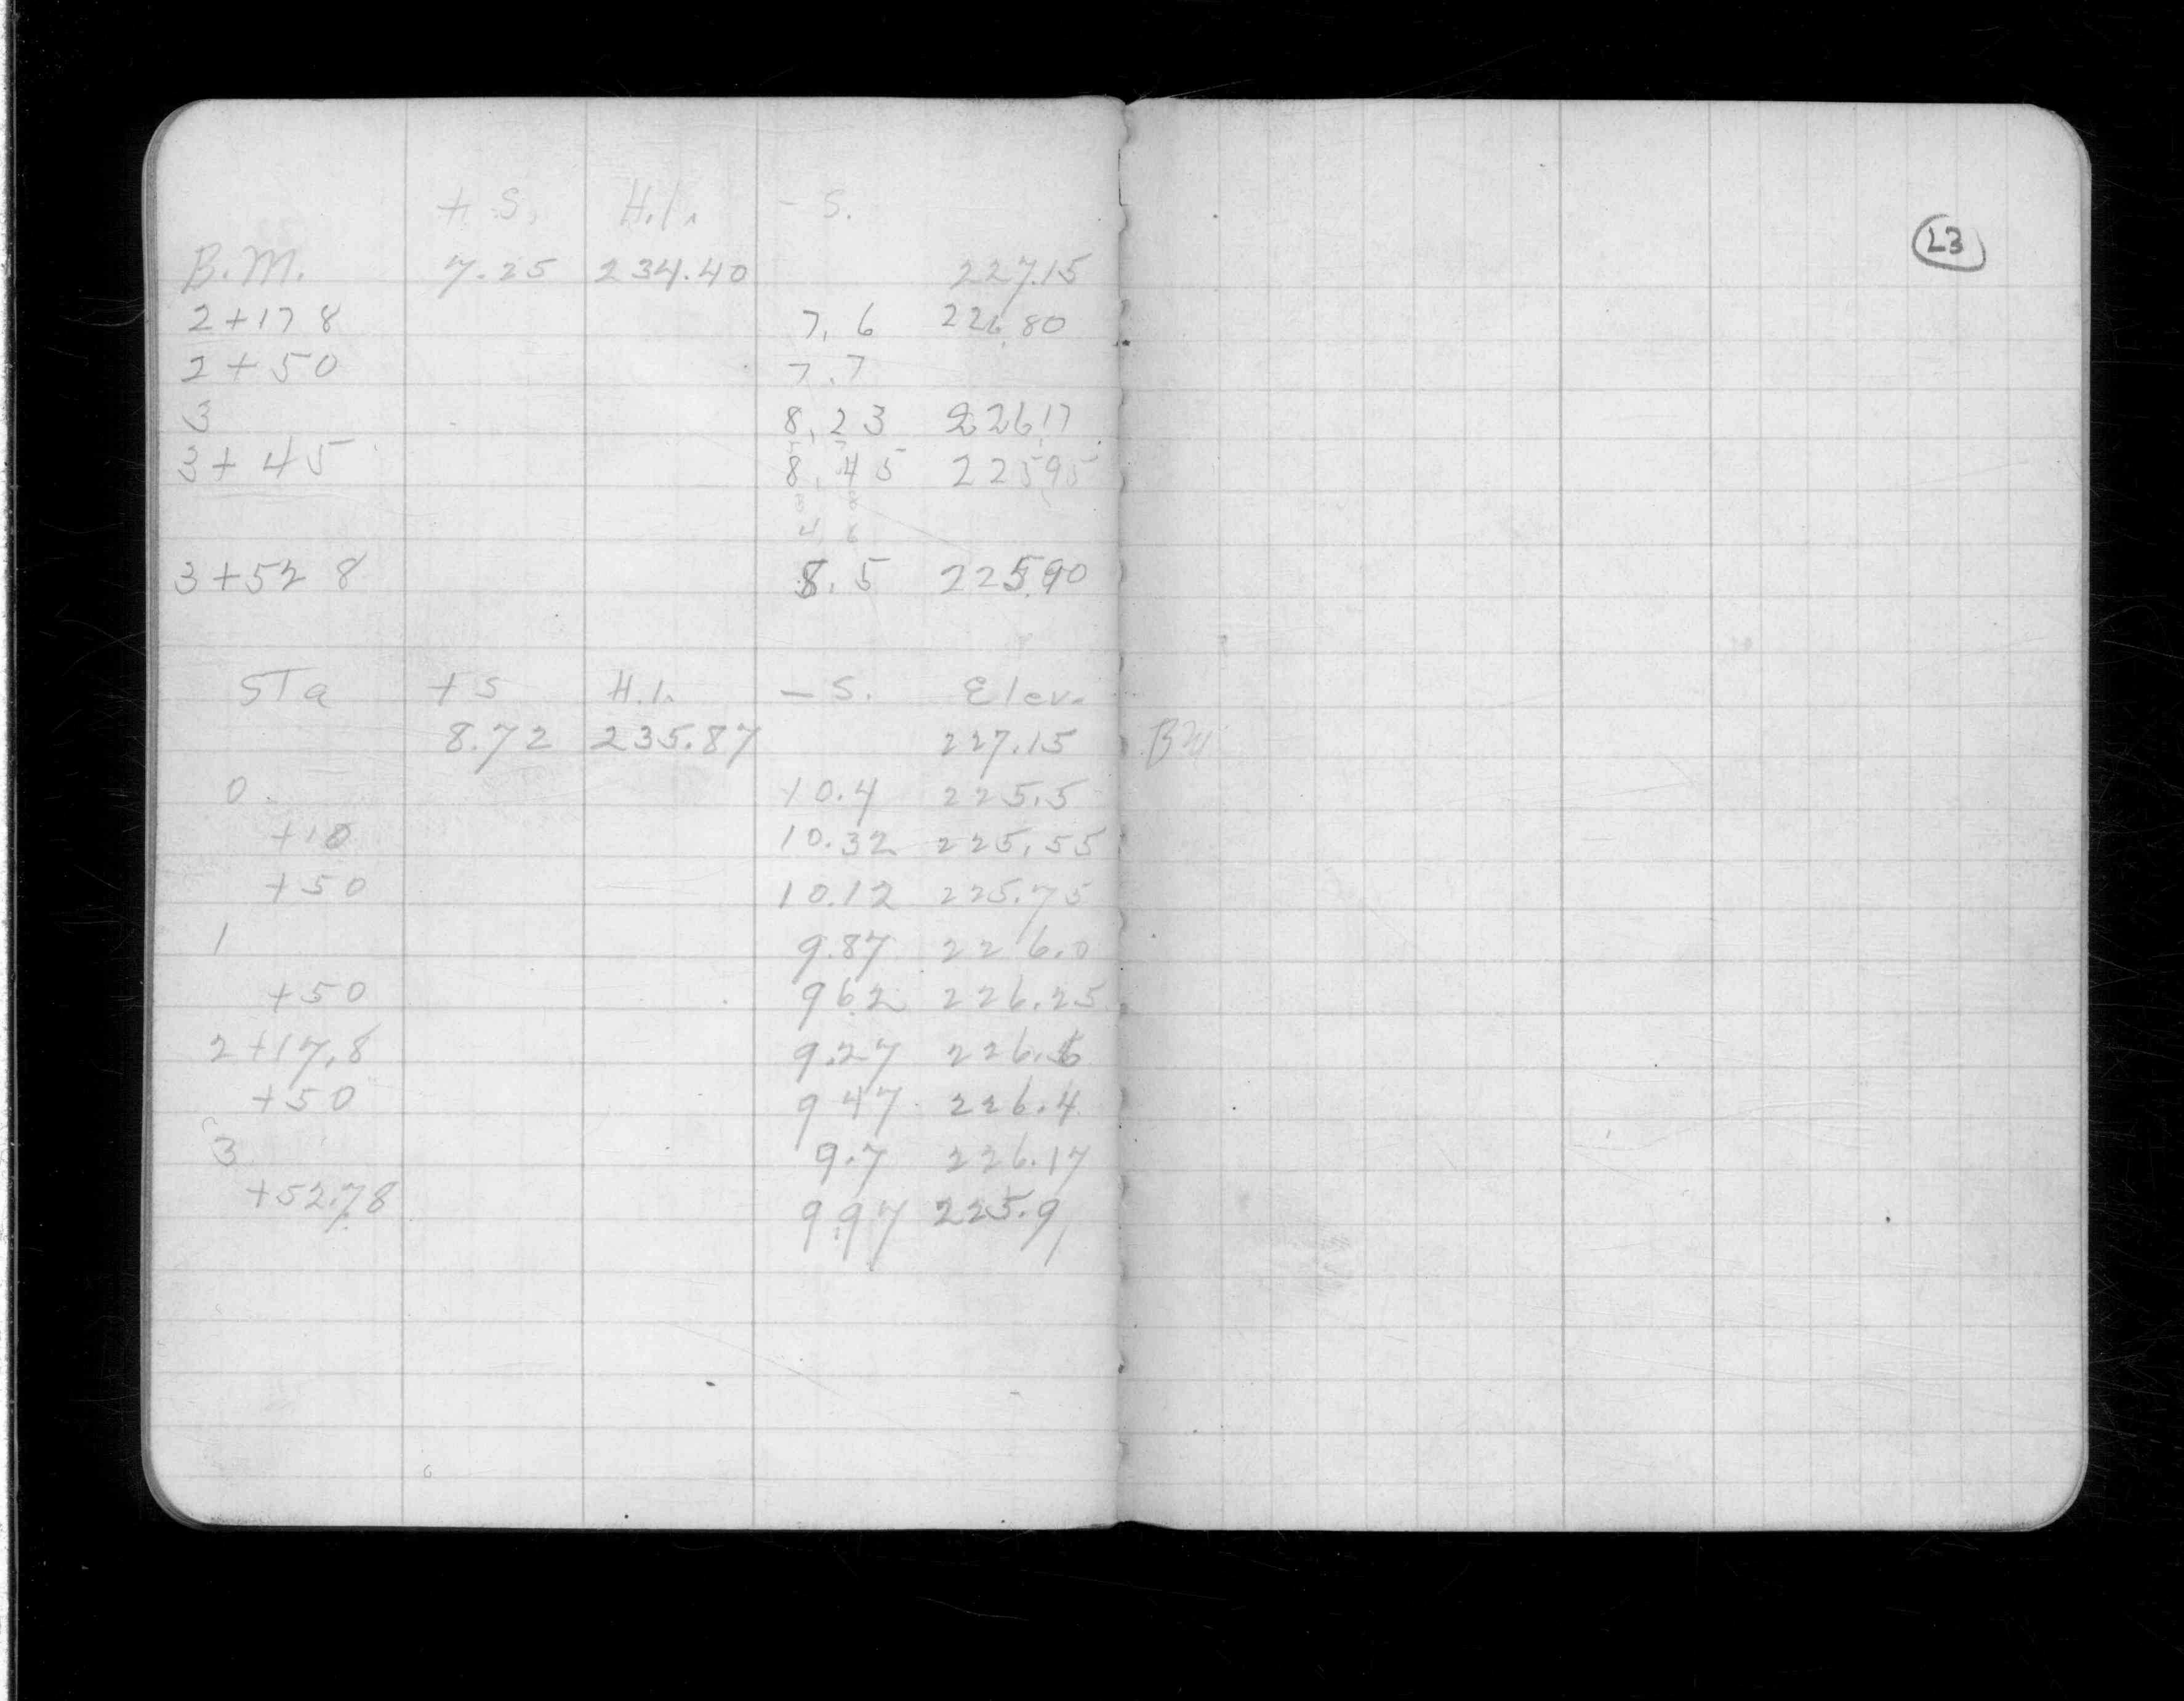 + S. H.I. - S.
B.M. 7.25 234.40 227.15
2+17 8 7.6 226.80
2+50 7.7
3 8.23 226.17
3+45 8.45 225.95
3+52 8 8.5 225.90
STa +S H.I. - S. Elev.
8.72 235.87 227.15 BM
0 10.4 225.5
+10 10.32 225.55
+50 10.12 225.75
1 9.87 226.0
+50 9.62 226.25
2+17.8 9.27 226.6
+50 9 47 226.4
3 9.7 226.17
+52.78 9.97 225.9
23